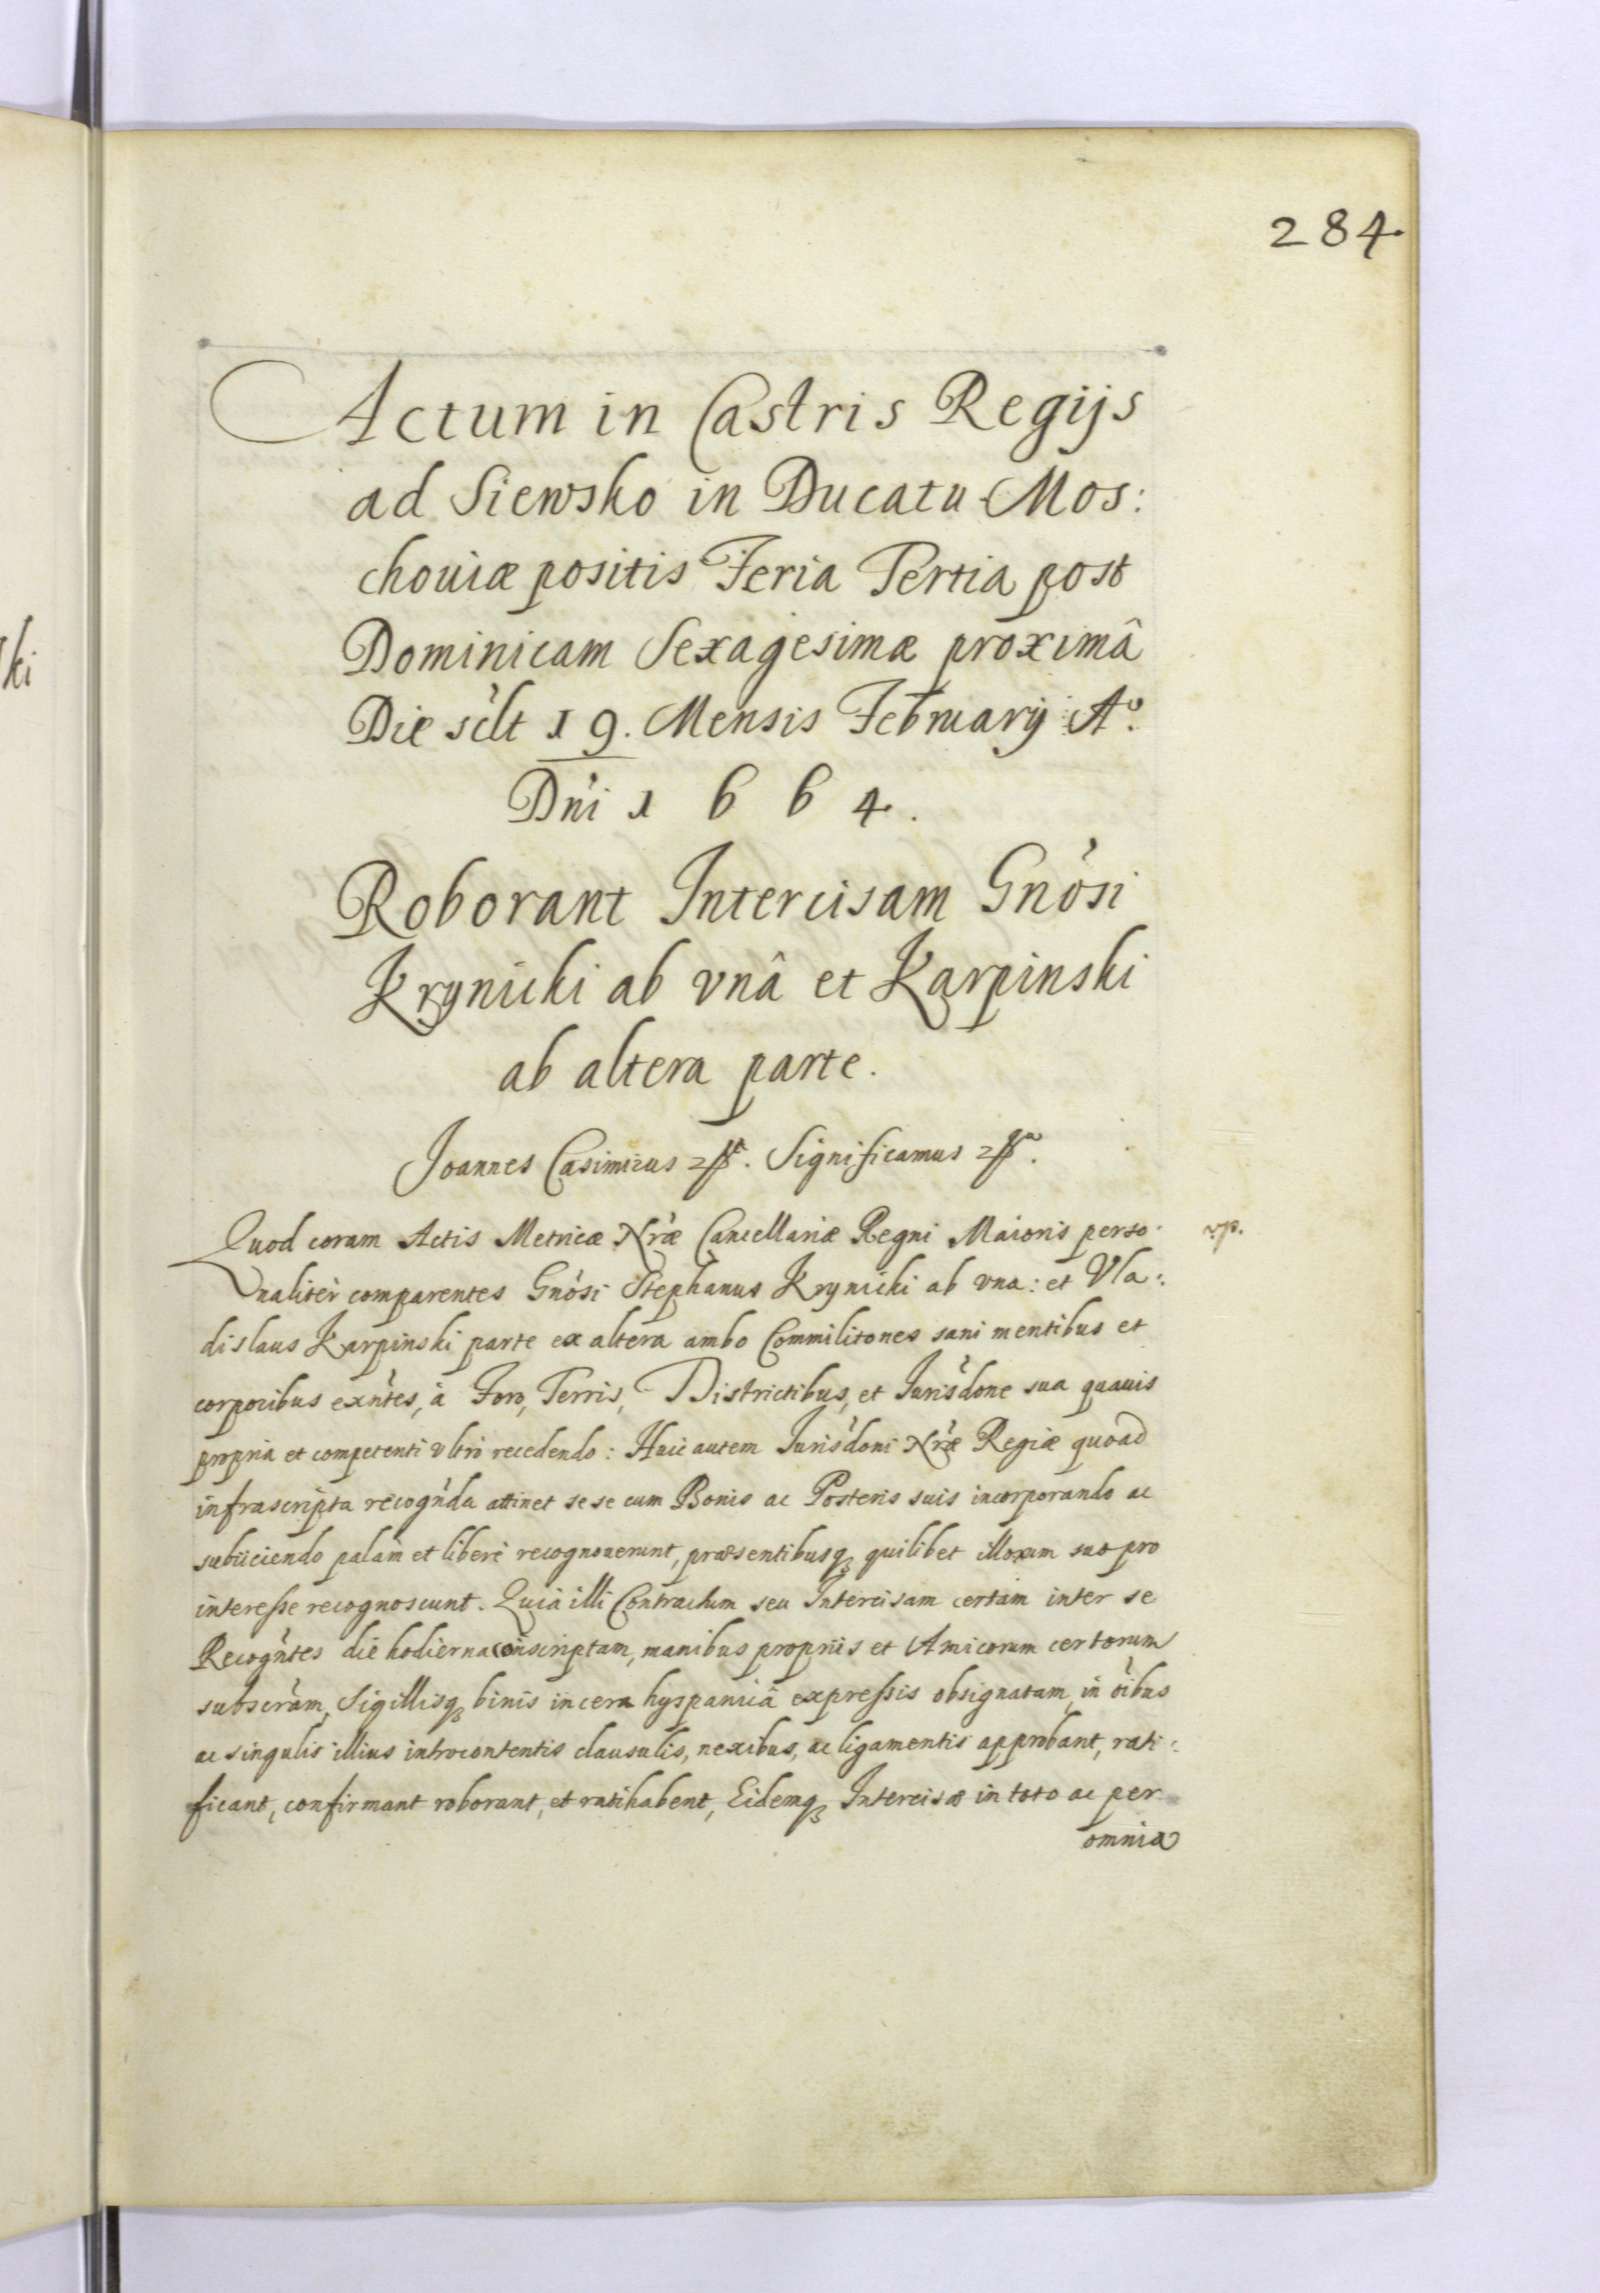 284.
Actum in Castris Regijs
ad Siewsko in Ducatu Mos:
chouiæ positis Feria Tertia post
Dominicam Sexagesimæ proximâ
Die sclt 19. Mensis February A°.
Dni 1 6 6 4.
Roborant Intercisam Gnosi
Krynicki ab vnâ et Karpinski
ab altera parte.
Joannes Casimirus Significamus
Quod coram Actis Metricæ Nræ Cancellariæ Regni Maioris perso:
vp.
naliter comparentes Gnosi Stephanus Krynicki ab vna: et Vla:
dislaus Karpinski parte ex altera ambo Commilitones sani mentibus et
corporibus exntes, à Foro, Terris, Districtibus, et Jurisdone sua quauis
propria et competenti vltro recedendo: Huic autem Jurisdoni Nræ Regiæ quoad
infrascripta recognda attinet sese cum Bonis ac Posteris suis incorporando ac
subiiciendo palam et liberè recognouerunt, præsentibusq quilibet illorum suo pro
interesse recognoscunt. Quia illi Contractum seu Intercisam certam inter se
Recogntes die hodierna conscriptam, manibus proprijs et Amicorum certorum
subscram, Sigillisq binis in cera hyspanica expressis obsignatam, in oibus
ac singulis illius introcontentis clausulis, nexibus, ac ligamentis approbant, rati:
ficant, confirmant roborant, et ratihabent, Eidemq Intercisæ in toto ac per
omnia
ki